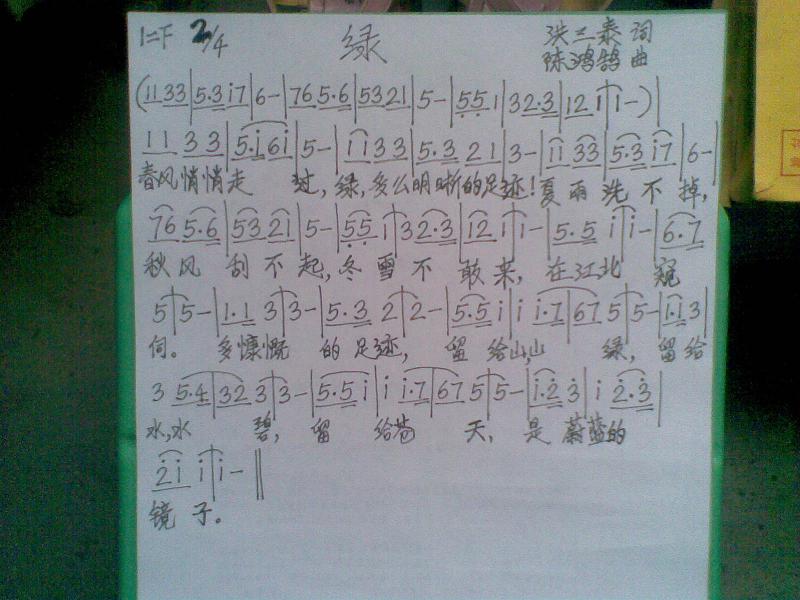 1=F 2/4 绿 洪三泰 词
陈鸿鹄 曲
(11 33|5·3 i7|6-|76 5·6|53 21|5-|55 1|3 2·3|12 1|1-)|
11 33|5·i 6i|5-|1i 33|5·3 21|3-|11 33|5·3 i7|6-|
春风悄悄走 过,绿,多么明晰的足迹!夏雨洗不掉,
76 5·6|53 21|5-|55 1|3 2·3|12 1|1-|5·5 i|i-|6·7
秋风刮不起,冬雪不敢来,在江北 窥
5|5-|1·1 3|3-|5·3 2|2-|5·5 i|i i·7|67 5|5-|1·1 3|
伺。多慷慨的足迹,留给山,山 绿,留给
3 5·4|32 3|3-|5·5 i|i i·7|67 5|5-|i·2 3|i 2·3|
水,水 碧,留 给苍 天,是蔚蓝的
2i i|i-||
镜子。